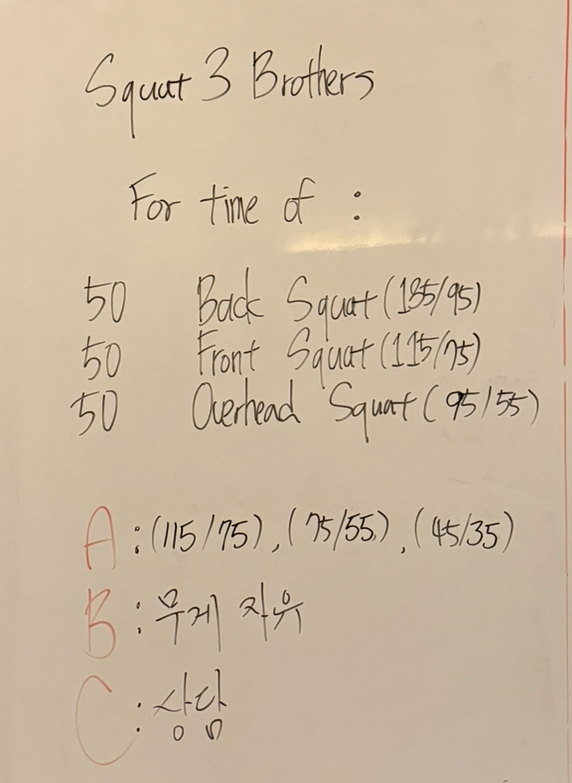 Squat 3 Brothers
For time of :
50 Back Squat (135/95)
50 Front Squat (115/75)
50 Overhead Squat (95/55)
A : (115/75), (75/55), (45/35)
B : 무게 자유
C : 상담